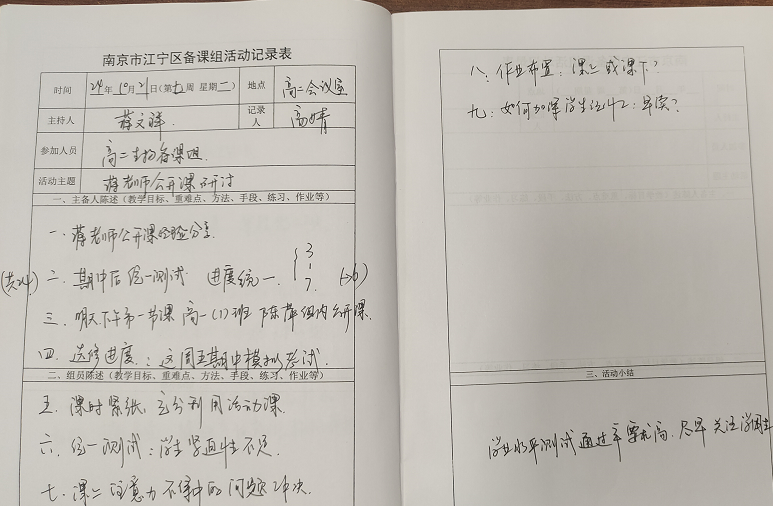 南京市江宁区备课组活动记录表
时间 24年10月21日(第七周 星期二) 地点 高二会议室
主持人 蒋文祥 记录人 高婧
参加人员 高二生物备课组
活动主题 蒋老师公开课研讨
一、主备人陈述（教学目标、重难点、方法、手段、练习、作业等）
一、蒋老师公开课经验分享
(共24) 二、期中后统一测试 进度统一. { 3 - 7. (>6)
三、明天下午第一节课 高一(1)班 陈 组内公开课.
四、选修进度: 这周五期中模拟考试.
二、组员陈述（教学目标、重难点、方法、手段、练习、作业等）
五、课时紧张, 充分利用活动课.
六、统一测试: 学生紧迫性不足.
七、课上注意力不集中的问题解决.
八: 作业布置: 课上或课下?
九: 如何加深学生记忆: 早读?
三、活动小结
学业水平测试通过率要求高. 尽早关注学困生